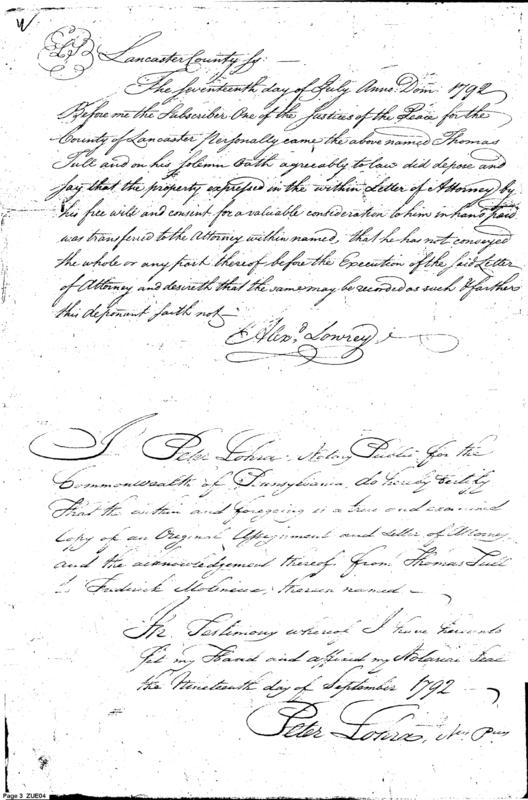 LS Lancaster County ss.
The seventeenth day of July Anno Dom: 1792
Before me the Subscriber One of the Justices of the Peace for the
County of Lancaster Personally came the above named Thomas
Tull and on his solemn Oath agreeably to law did depose and
say that the property expressed in the within Letter of Attorney by
his free will and consent for a valuable consideration to him in hand paid
was transferred to the Attorney within named, that he has not conveyed
the whole or any part thereof before the Execution of the said Letter
of Attorney and desireth that the same may be recorded as such & farther
this deponant saith not —
Alexd. Lowrey
I Peter Lohra Notary Public for the
Commonwealth of Pennsylvania, do hereby Certify
That the within and foregoing is a true and examined
Copy of an Original Assignment and Letter of Attorney
and the acknowledgement thereof, from Thomas Tull
to Frederick therein named —
In Testimony whereof I have hereunto
set my Hand and affixed my Notarial Seal
the Nineteenth day of September 1792
Peter Lohra,
Page 3 ZUE04